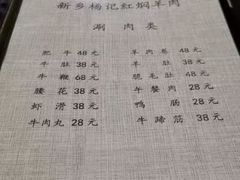 新乡杨记红焖羊肉
涮 肉 类
肥 牛 48 元 羊肉卷 48 元
牛 肚 38 元 羊 肚 38 元
牛 鞭 68 元 脆毛肚 48 元
腰 花 38 元 午餐肉 28 元
虾 滑 38 元 鸭 肠 28 元
牛肉丸 28 元 牛蹄筋 38 元